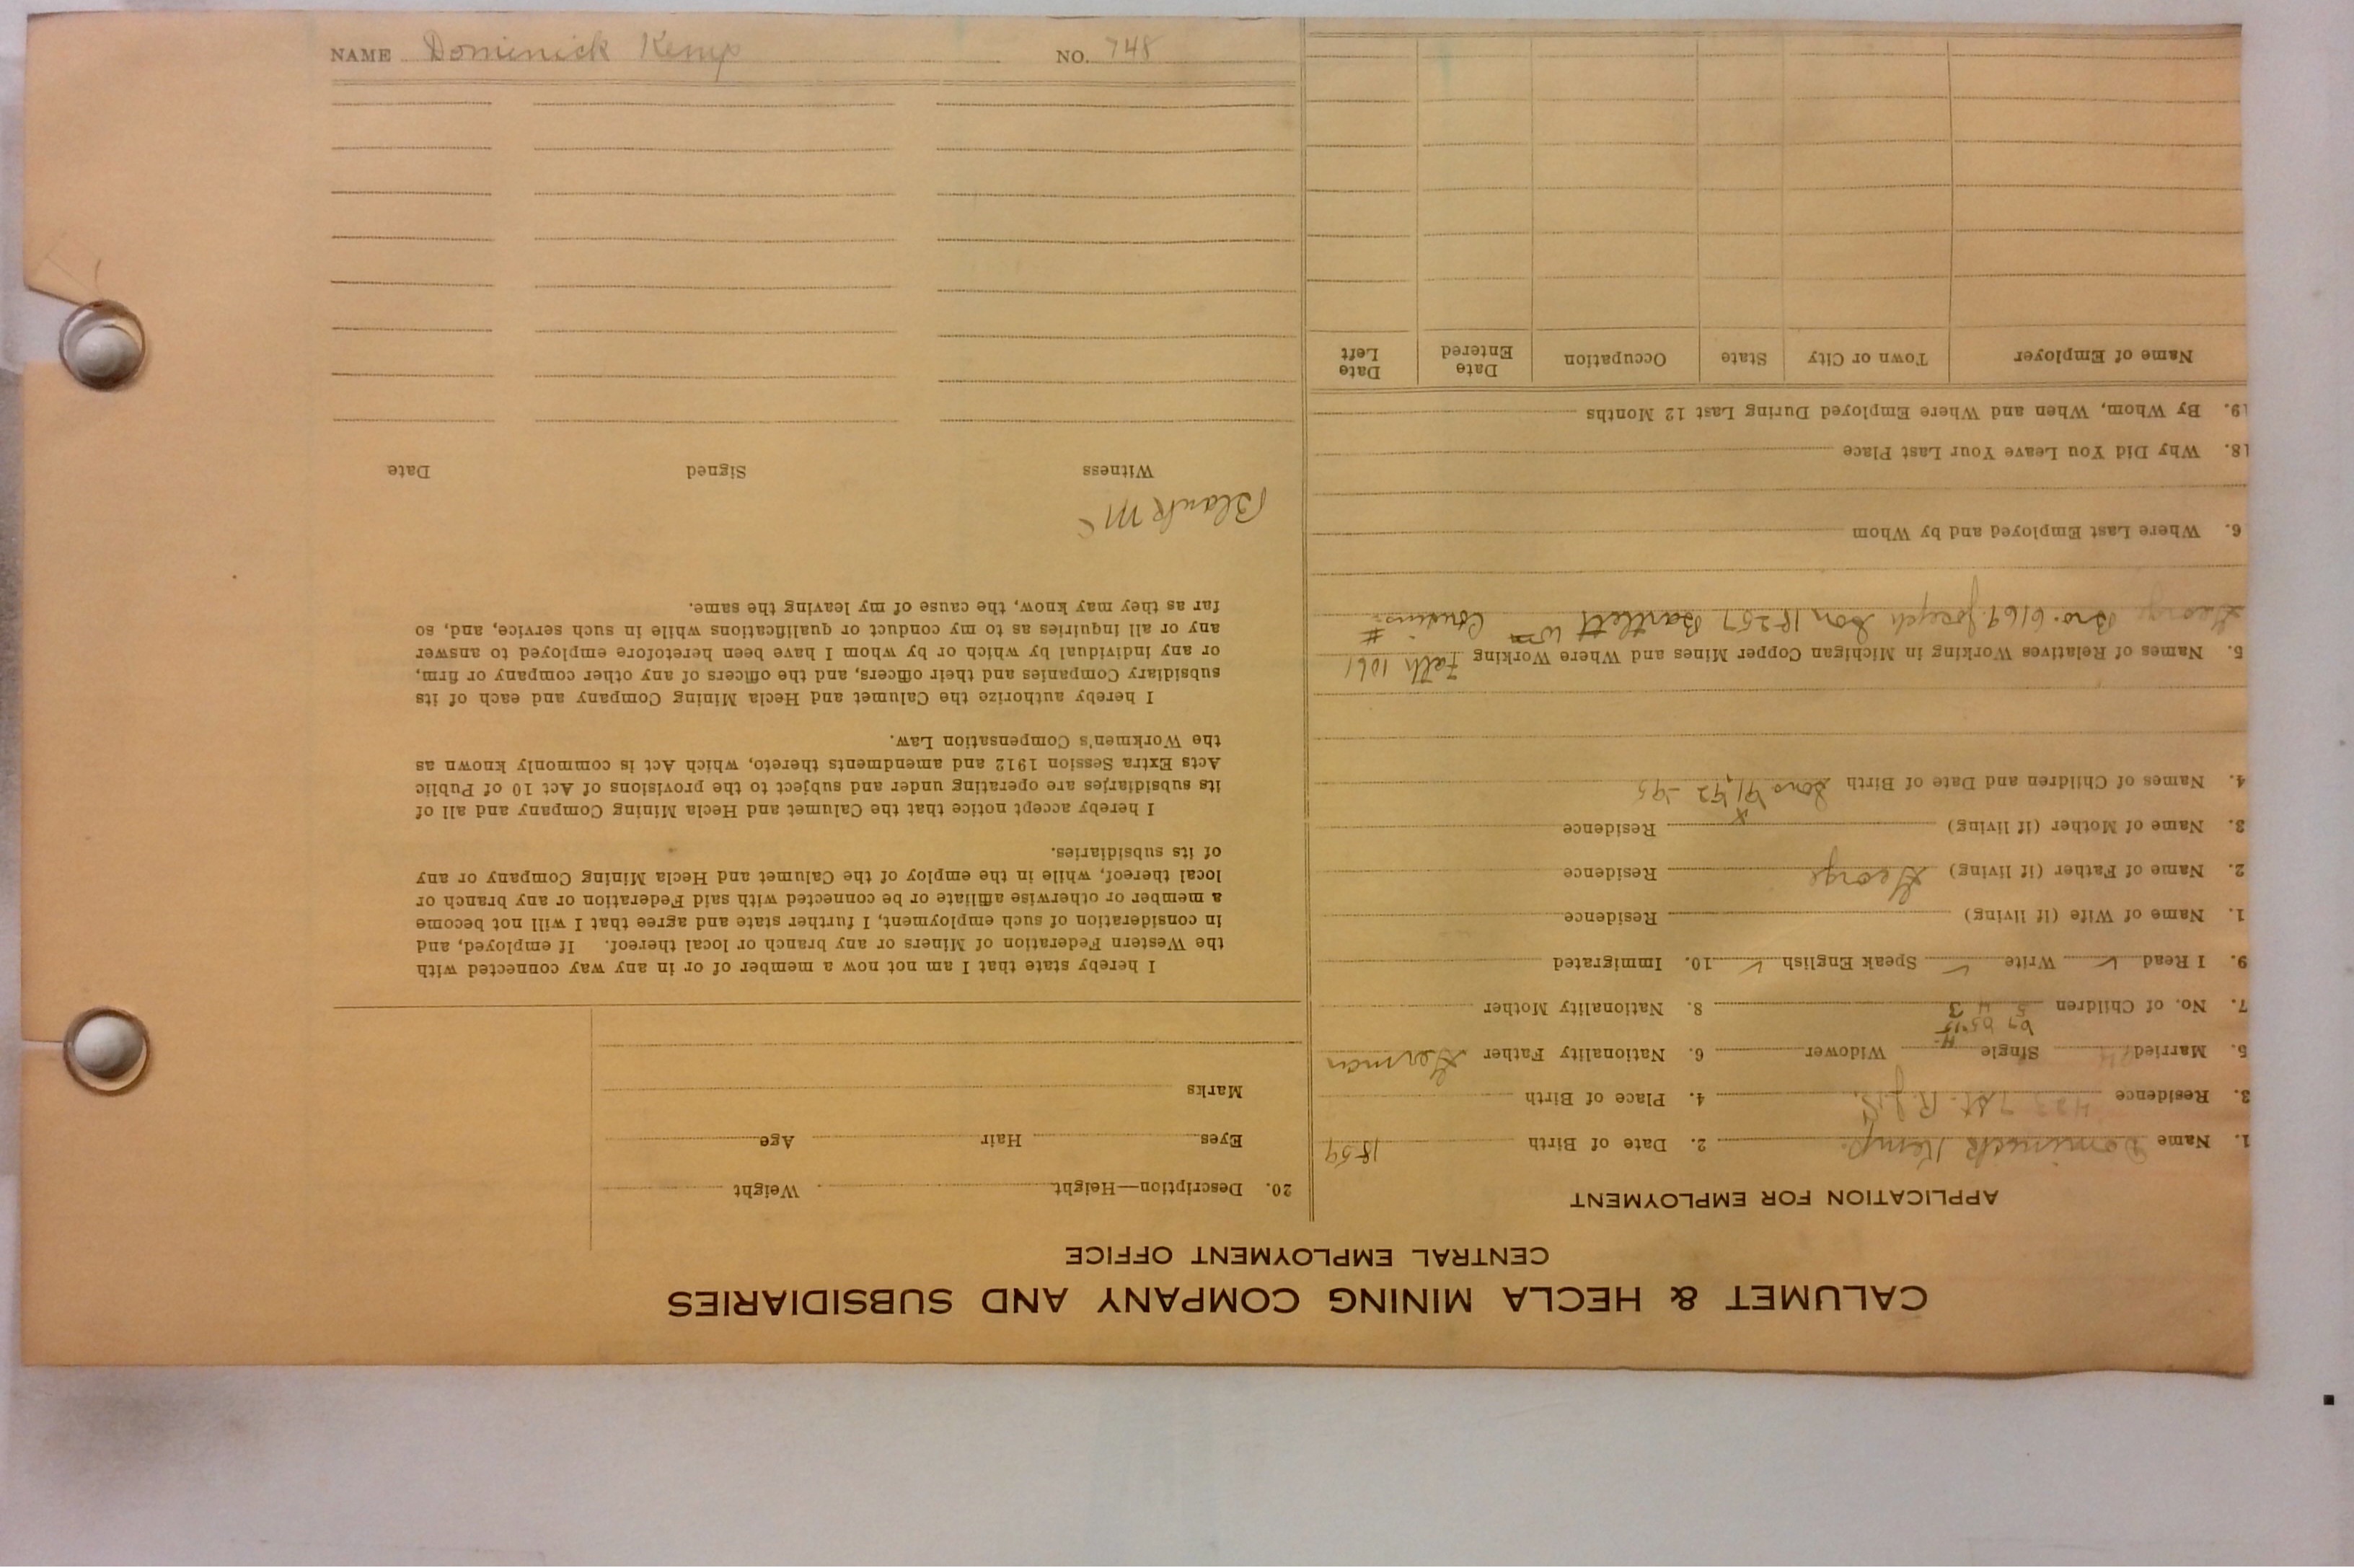 NAME Dominick Kemp NO. 748
CALUMET & HECLA MINING COMPANY AND SUBSIDIARIES
CENTRAL EMPLOYMENT OFFICE
APPLICATION FOR EMPLOYMENT
1. Name Dominick Kemp. 2. Date of Birth 1859
3. Residence 7 St. R. J. 4. Place of Birth
5. Married Single Widower 6. Nationality Father German
7. No. of Children 5 4 3 8. Nationality Mother
9. I Read ✓ Write ✓ Speak English ✓ 10. Immigrated
1. Name of Wife (if living) Residence
2. Name of Father (if living) George Residence
3. Name of Mother (if living) x Residence
4. Names of Children and Date of Birth Sons 91, 92 - 95
5. Names of Relatives Working in Michigan Copper Mines and Where Working Fath 1061
George Bro. 6169 Joseph Son 18257 Bartlett Wm Cousins #
6. Where Last Employed and by Whom
18. Why Did You Leave Your Last Place
19. By Whom, When and Where Employed During Last 12 Months
Name of Employer Town or City State Occupation Date Entered Date Left
20. Description—Height Weight
Eyes Hair Age
Marks
I hereby state that I am not now a member of or in any way connected with
the Western Federation of Miners or any branch or local thereof. If employed, and
in consideration of such employment, I further state and agree that I will not become
a member or otherwise affiliate or be connected with said Federation or any branch or
local thereof, while in the employ of the Calumet and Hecla Mining Company or any
of its subsidiaries.
I hereby accept notice that the Calumet and Hecla Mining Company and all of
its subsidiaries are operating under and subject to the provisions of Act 10 of Public
Acts Extra Session 1912 and amendments thereto, which Act is commonly known as
the Workmen's Compensation Law.
I hereby authorize the Calumet and Hecla Mining Company and each of its
subsidiary Companies and their officers, and the officers of any other company or firm,
or any individual by which or by whom I have been heretofore employed to answer
any or all inquiries as to my conduct or qualifications while in such service, and, so
far as they may know, the cause of my leaving the same.
Blank Mc
Witness Signed Date